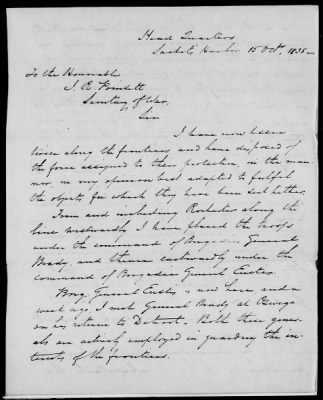 Head Quarters
Sackets Harbor 15 Oct. 1838
To the Honorable
J. R. Poinsett
Secretary of War,
Sir
I have now been
twice along the frontiers and have disposed of
the force assigned to their protection, in the man-
ner in my opinion best adapted to fulfil
the objects for which they have been sent hither.
From and including Rochester along the
line westwardly I have placed the troops
under the command of Brigadier General
Brady, and thence eastwardly under the
command of Brigadier General Eustis.
Brig. General Eustis is now here, and a
week ago I met General Brady at Oswego
on his return to Detroit. Both these gener-
als are actively employed in guarding the in-
terests of the frontiers.